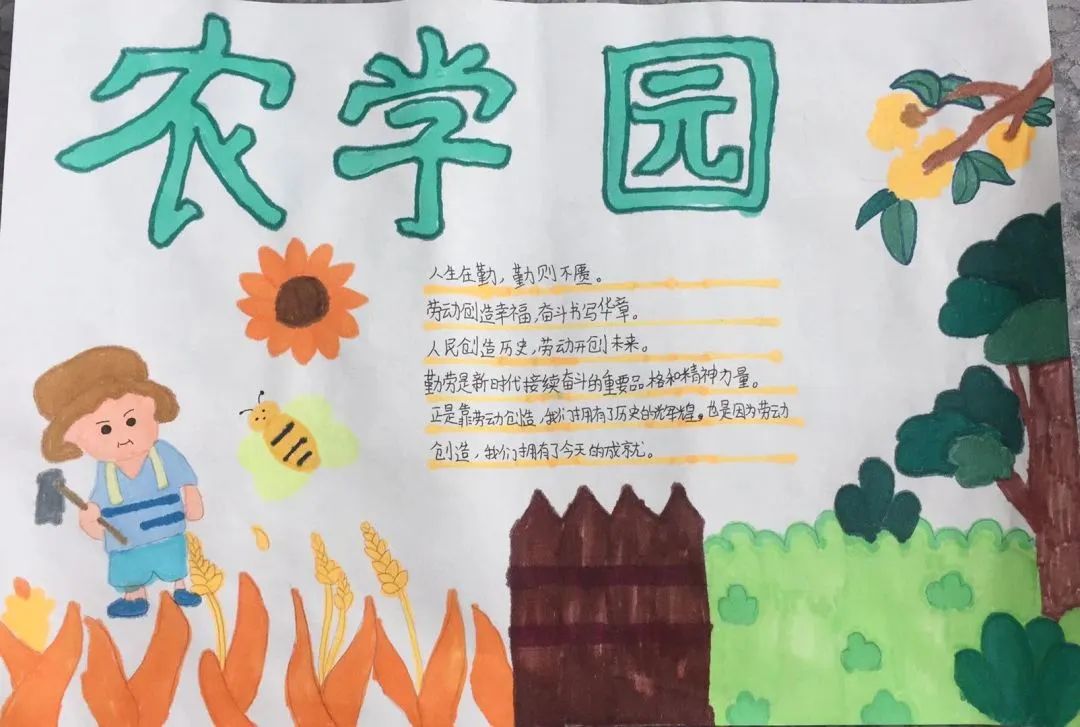 农学园
人生在勤，勤则不匮。
劳动创造幸福，奋斗书写华章。
人民创造历史，劳动开创未来。
勤劳是新时代接续奋斗的重要品格和精神力量。
正是靠劳动创造，我们拥有了历史的光辉煌。也是因为劳动
创造，我们拥有了今天的成就。